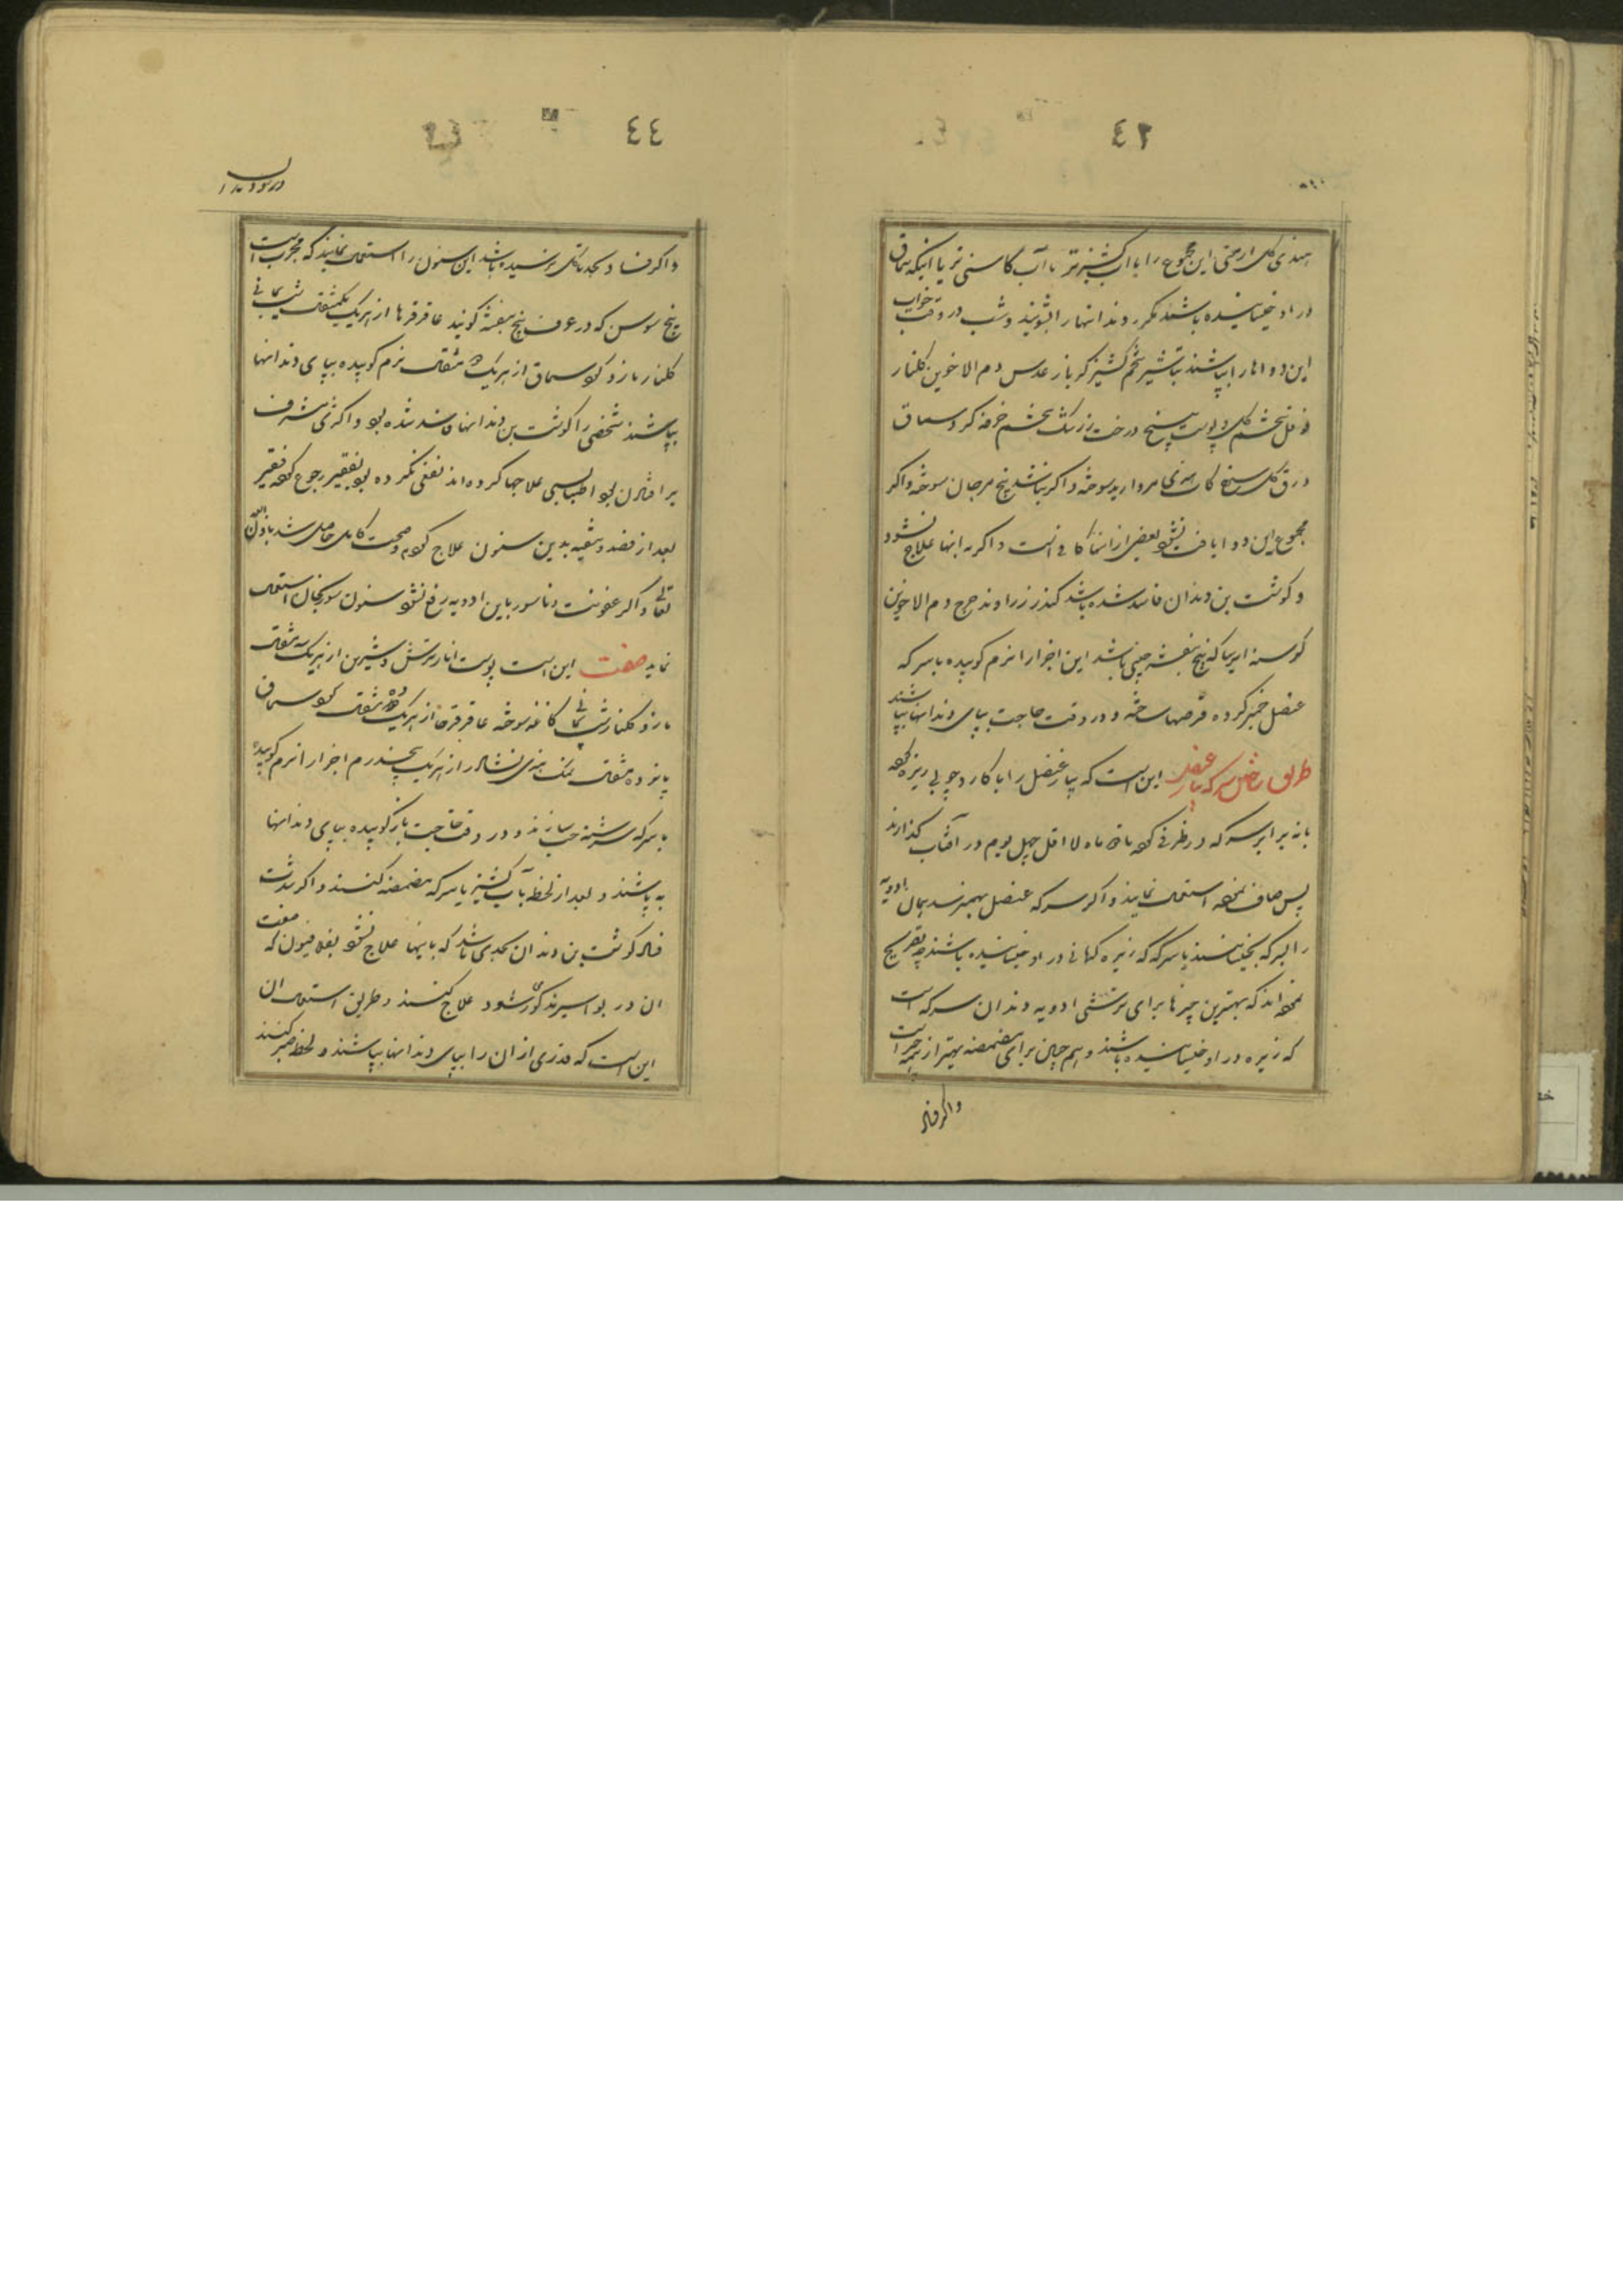 ٤٣
هندی گل ارمنی این مجموع را با آب کشنیز تر یا آب کاسنی تر یا آنکه سماق
در او خیسانیده باشند مکرر دندانها را بشویند و شب در وقت خواب
این دواها را بپاشند تباشیر تخم کشنیز کزبار عدس دم الاخوین گلنار
فوفل تخم گل و پوست بیخ درخت زرشک تخم خرفه کرد سماق
ورق گل سرخ کات هندی مروارید سوخته و اگر نباشد بیخ مرجان سوخته و اگر
مجموع این دوا یافت نشود بعضی از اینها کافی است و اگر به اینها علاج نشود
و گوشت بن دندان فاسد شده باشد کندر زراوند مدحرج دم الاخوین
کرسنه ایرسا که بیخ بنفشه چینی باشد این اجزا را نرم کوبیده با سرکه
عنصل خمیر کرده قرصها ساخته و در وقت حاجت بپای دندانها بپاشند
طریق ساختن سرکه پیاز عنصل این است که پیاز عنصل را با کارد چوبی ریزه کرده
با نه برابر سرکه در ظرفی کرده تا دو ماه لا اقل چهل یوم در آفتاب گذارند
پس صاف نموده استعمال نمایند و اگر سرکه عنصل بهم نرسد همان ادویه
را بسرکه بخیسانند یا سرکه که زیره کرمانی در او خیسانیده باشند چه تصریح
نموده‌اند که بهترین چیزها برای ترشی ادویه دندان سرکه است
که زیره در او خیسانیده باشند و همچنین برای مضمضه بهتر از همه چیز است
و اگر فساد
٤٤
و اگر فساد و بحد تآکل نرسیده باشد این سنون را استعمال نمایند که مجرب است
بیخ سوسن که در عرف بیخ بنفشه گویند عاقرقرحا از هر یک یکمثقال شب یمانی
گلنار مازو کرد سماق از هر یک دو مثقال نرم کوبیده بپای دندانها
بپاشند شخصی را گوشت بن دندانها فاسد شده بود و اکثری مشرف
بر افتادن بود اطبا بسی علاجها کرده‌اند نفعی نکرده بود بفقیر رجوع کرده فقیر
بعد از فصد و تنقیه بدین سنون علاج کرده و صحت کامل حاصل شد باذن الله
تعالی و اگر عفونت و ناسور باین ادویه رفع نشود سنون سورنجان استعمال
نماید صفت این است پوست انار ترش و شیرین از هر یک سه مثقال
مازو گلنار شب یمانی کاغذ سوخته عاقرقرحا از هر یک دو مثقال کرد سماق
پانزده مثقال نمک هندی نشادر از هر یک پنجدرم اجزا را نرم کوبیده
با سرکه سرشته حب سازند و در وقت حاجت باز کوبیده بپای دندانها
به پاشند و بعد از لحظه بآب کشنیز یا سرکه مضمضه کنند و اگر شدت
فساد گوشت بن دندان بحدی باشد که باینها علاج نشود بفلافیون که صفت
آن در بواسیر مذکور شود علاج کنند و طریق استعمال آن
این است که قدری از آن را بپای دندانها بپاشند و لحظه صبر کنند